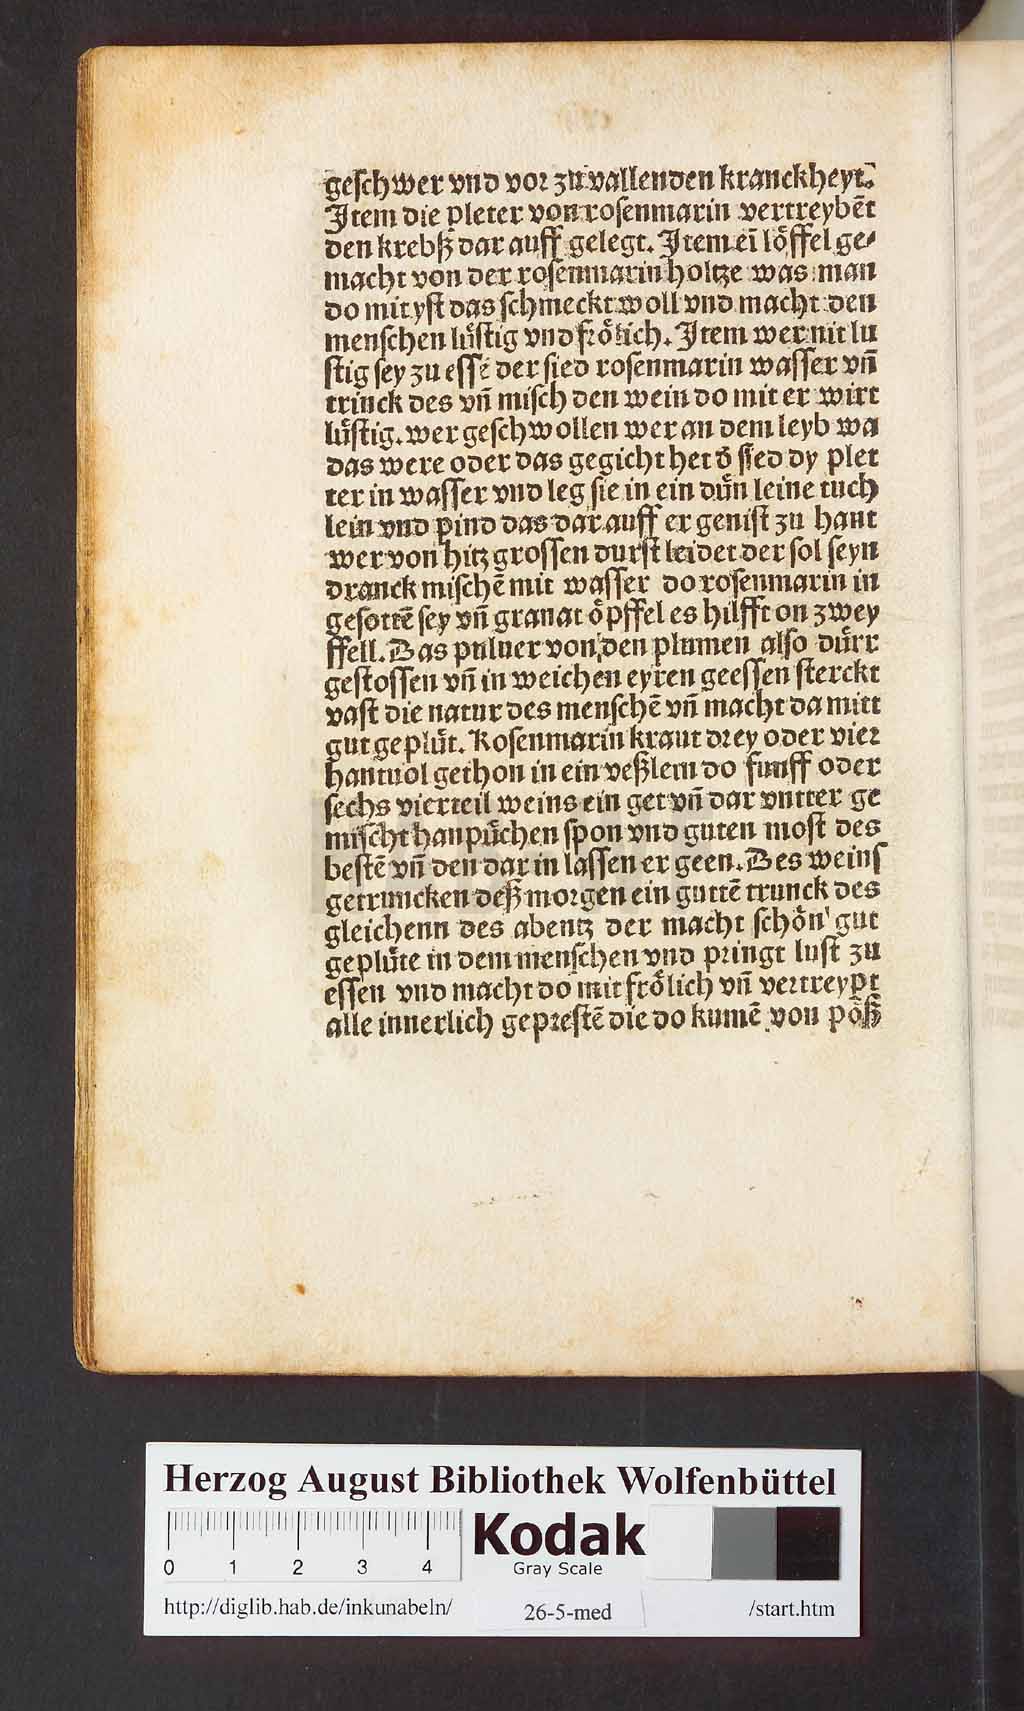 geſchwer vnd vor zu vallenden kranckheyt.
Item die pleter von roſenmarin vertreybēt
den krebß dar auff gelegt. Item eī loͤffel ge⸗
macht von der roſenmarin holtze was man
do mit yſt das ſchmeckt woll vnd macht den
menſchen luͤſtig vnd froͤlich. Item wer nit lu
ſtig ſey zu eſſē der ſied roſenmarin waſſer vn̄
trinck des vn̄ miſch den wein do mit er wirt
luͤſtig. wer geſchwollen wer an dem leyb wa
das were oder das gegicht het ð ſied dy plet
ter in waſſer vnd leg ſie in ein duͤn leine tuch
lein vnd pind das dar auff er geniſt zu hant
wer von hitz groſſen durſt leidet der ſol ſeyn
dranck miſchē mit waſſer do roſenmarin in
geſottē ſey vn̄ granat oͤpffel es hilfft on zwey
ffell. Das puluer von den plumen alſo duͤrr
geſtoſſen vn̄ in weichen eyren geeſſen ſterckt
vaſt die natur des menſchē vn̄ macht da mitt
gut gepluͤt. Roſenmarin kraut drey oder vier
hantuol gethon in ein veßlein do funff oder
ſechs vierteil weins ein get vn̄ dar vntter ge
miſcht hanpuͤchen ſpon vnd guten moſt des
beſtē vn̄ den dar in laſſen er geen. Des weinſ
getruncken deß morgen ein guttē trunck des
gleichenn des abentz der macht ſchoͤn gut
gepluͤte in dem menſchen vnd pringt luſt zu
eſſen vnd macht do mit froͤlich vn̄ vertreypt
alle innerlich gepreſtē die do kumē von poͤß
Herzog August Bibliothek Wolfenbüttel
0 1 2 3 4
Kodak
Gray Scale
http://diglib.hab.de/inkunabeln/ 26-5-med /start.htm